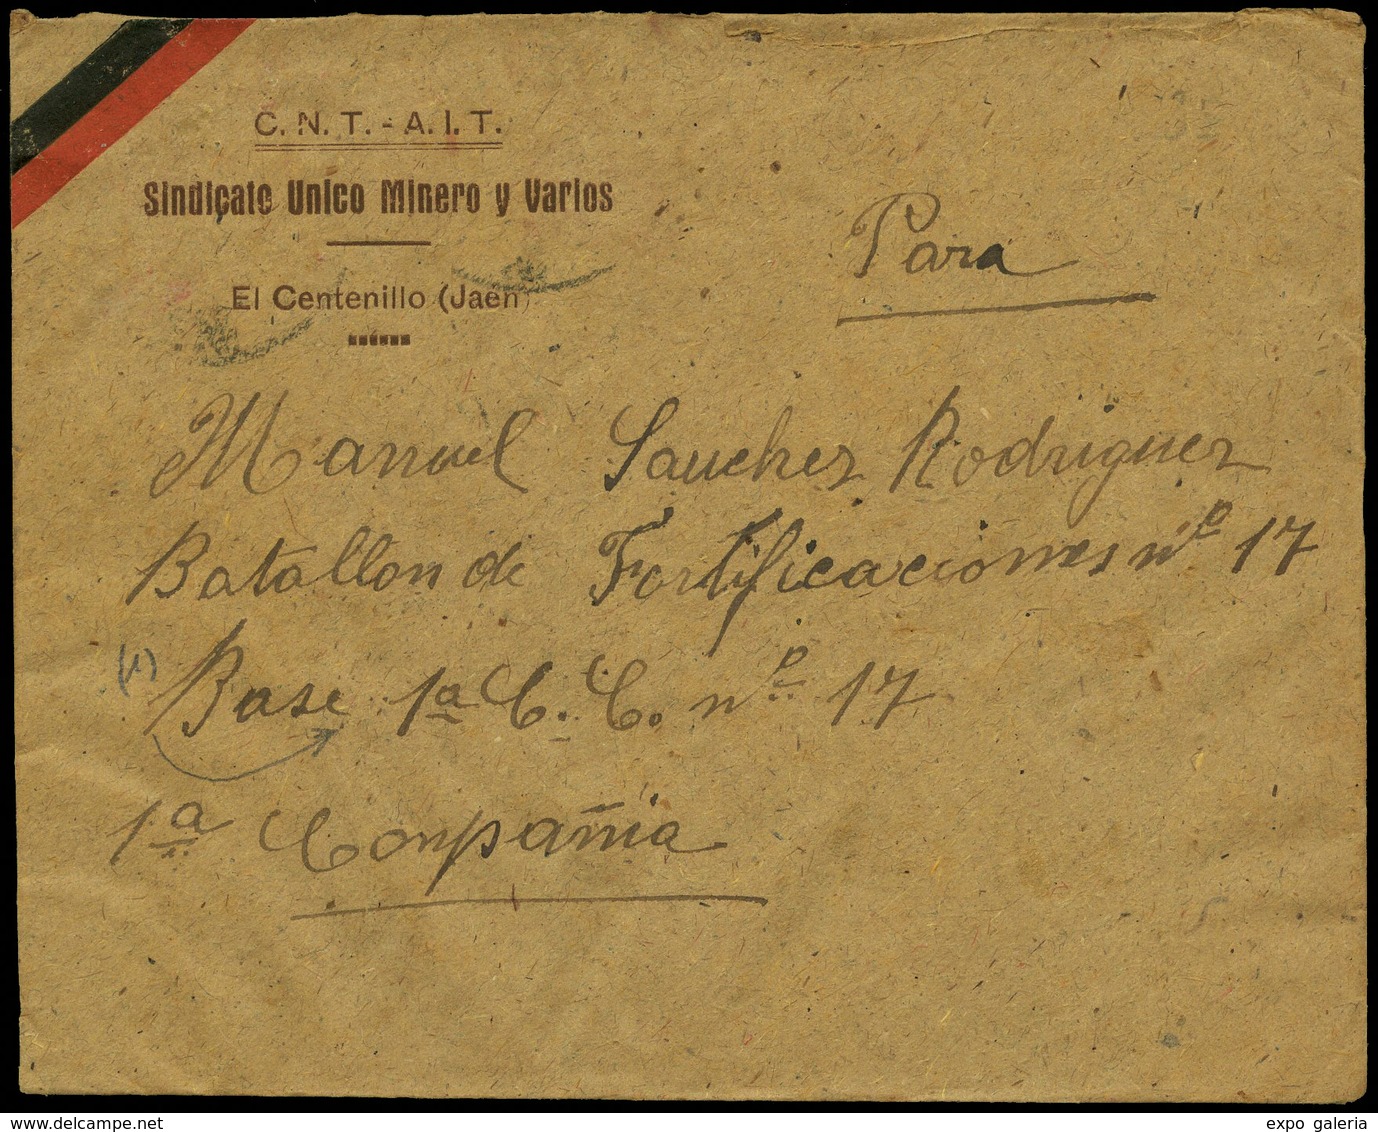 C. N. T. - A. I. T.
Sindicato Unico Minero y Varios
El Centenillo (Jaen)
Para
Manuel Sanchez Rodriguez
Batallon de Fortificaciones nº 17
(1) Base 1ª C. C. nº 17
1ª Conpañia
expo galeria